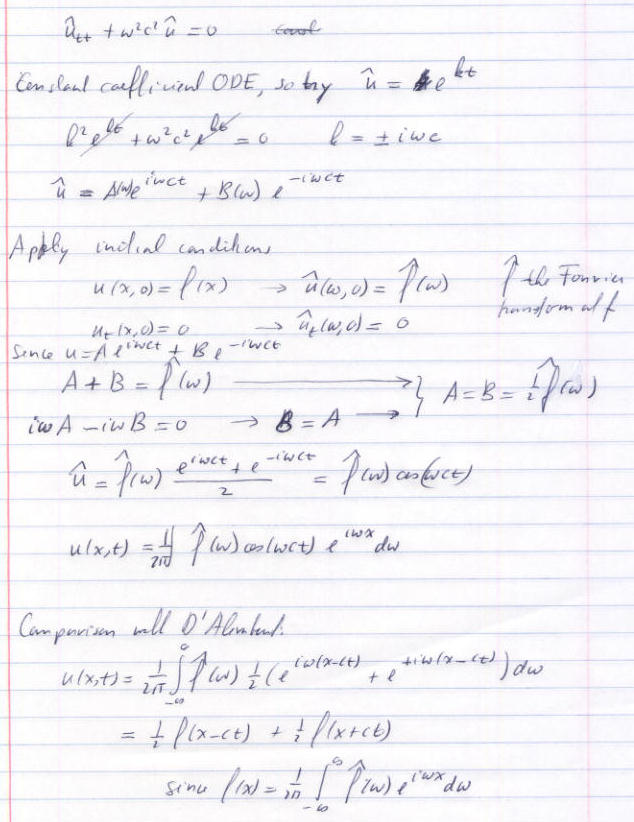 û_tt + ω²c² û = 0
Constant coefficient ODE, so try û = e^{kt}
k² e^{kt} + ω²c² e^{kt} = 0 k = ± iωc
û = A(ω)e^{iωct} + B(ω) e^{-iωct}
Apply initial conditions
u(x,0) = f(x) → û(ω,0) = f̂(ω) f̂ the Fourier
transform of f
u_t(x,0) = 0 → û_t(ω,0) = 0
Since u = A e^{iωct} + B e^{-iωct}
A + B = f̂(ω) ⟶ } A = B = ½ f̂(ω)
iωA - iωB = 0 → B = A →
û = f̂(ω) (e^{iωct} + e^{-iωct})/2 = f̂(ω) cos(ωct)
u(x,t) = 1/2π ∫ f̂(ω) cos(ωct) e^{iωx} dω
Comparison with D'Alembert:
u(x,t) = 1/2π ∫_{-∞}^{∞} f̂(ω) ½ (e^{iω(x-ct)} + e^{+iω(x-ct)}) dω
= ½ f(x-ct) + ½ f(x+ct)
since f(x) = 1/2π ∫_{-∞}^{∞} f̂(ω) e^{iωx} dω